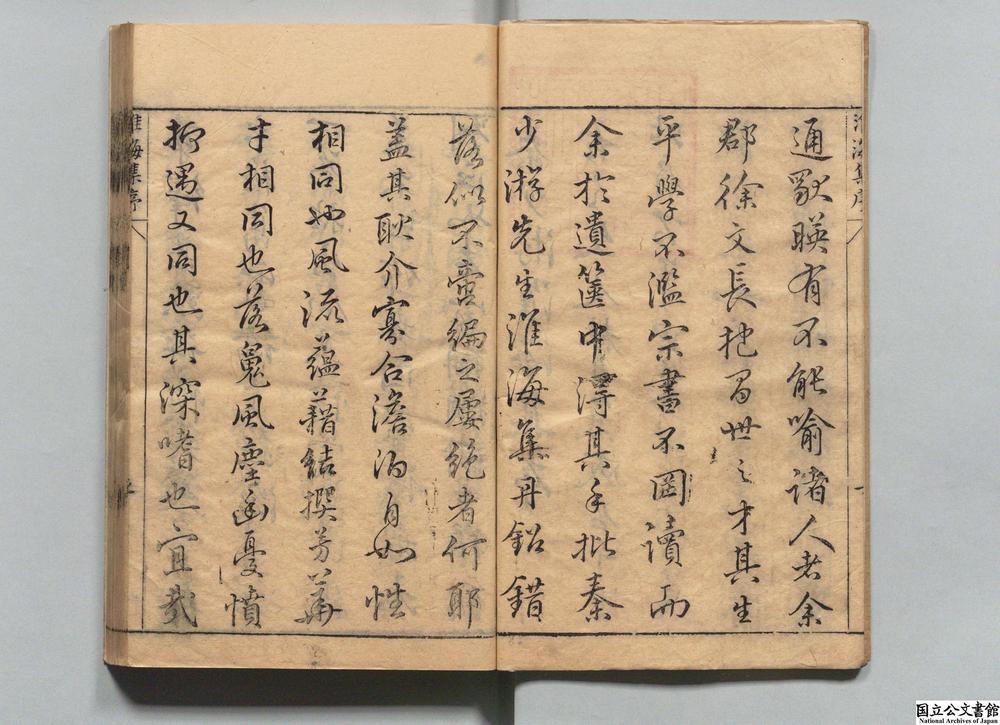 淮海集序
通歡暎有不能喻諸人者余
郡徐文長抱曷世之才其生
平學不濫宗書不罔讀而
余於遺篋中得其手批秦
少游先生淮海集丹鉛錯
落似不啻編之屢絕者何耶
蓋其耿介寡合澹泊自如性
相同也風流蘊藉結撰芳華
才相同也落魄風塵幽憂憤
抑遇又同也其深嗜也宜哉
淮海集序
国立公文書館
National Archives of Japan